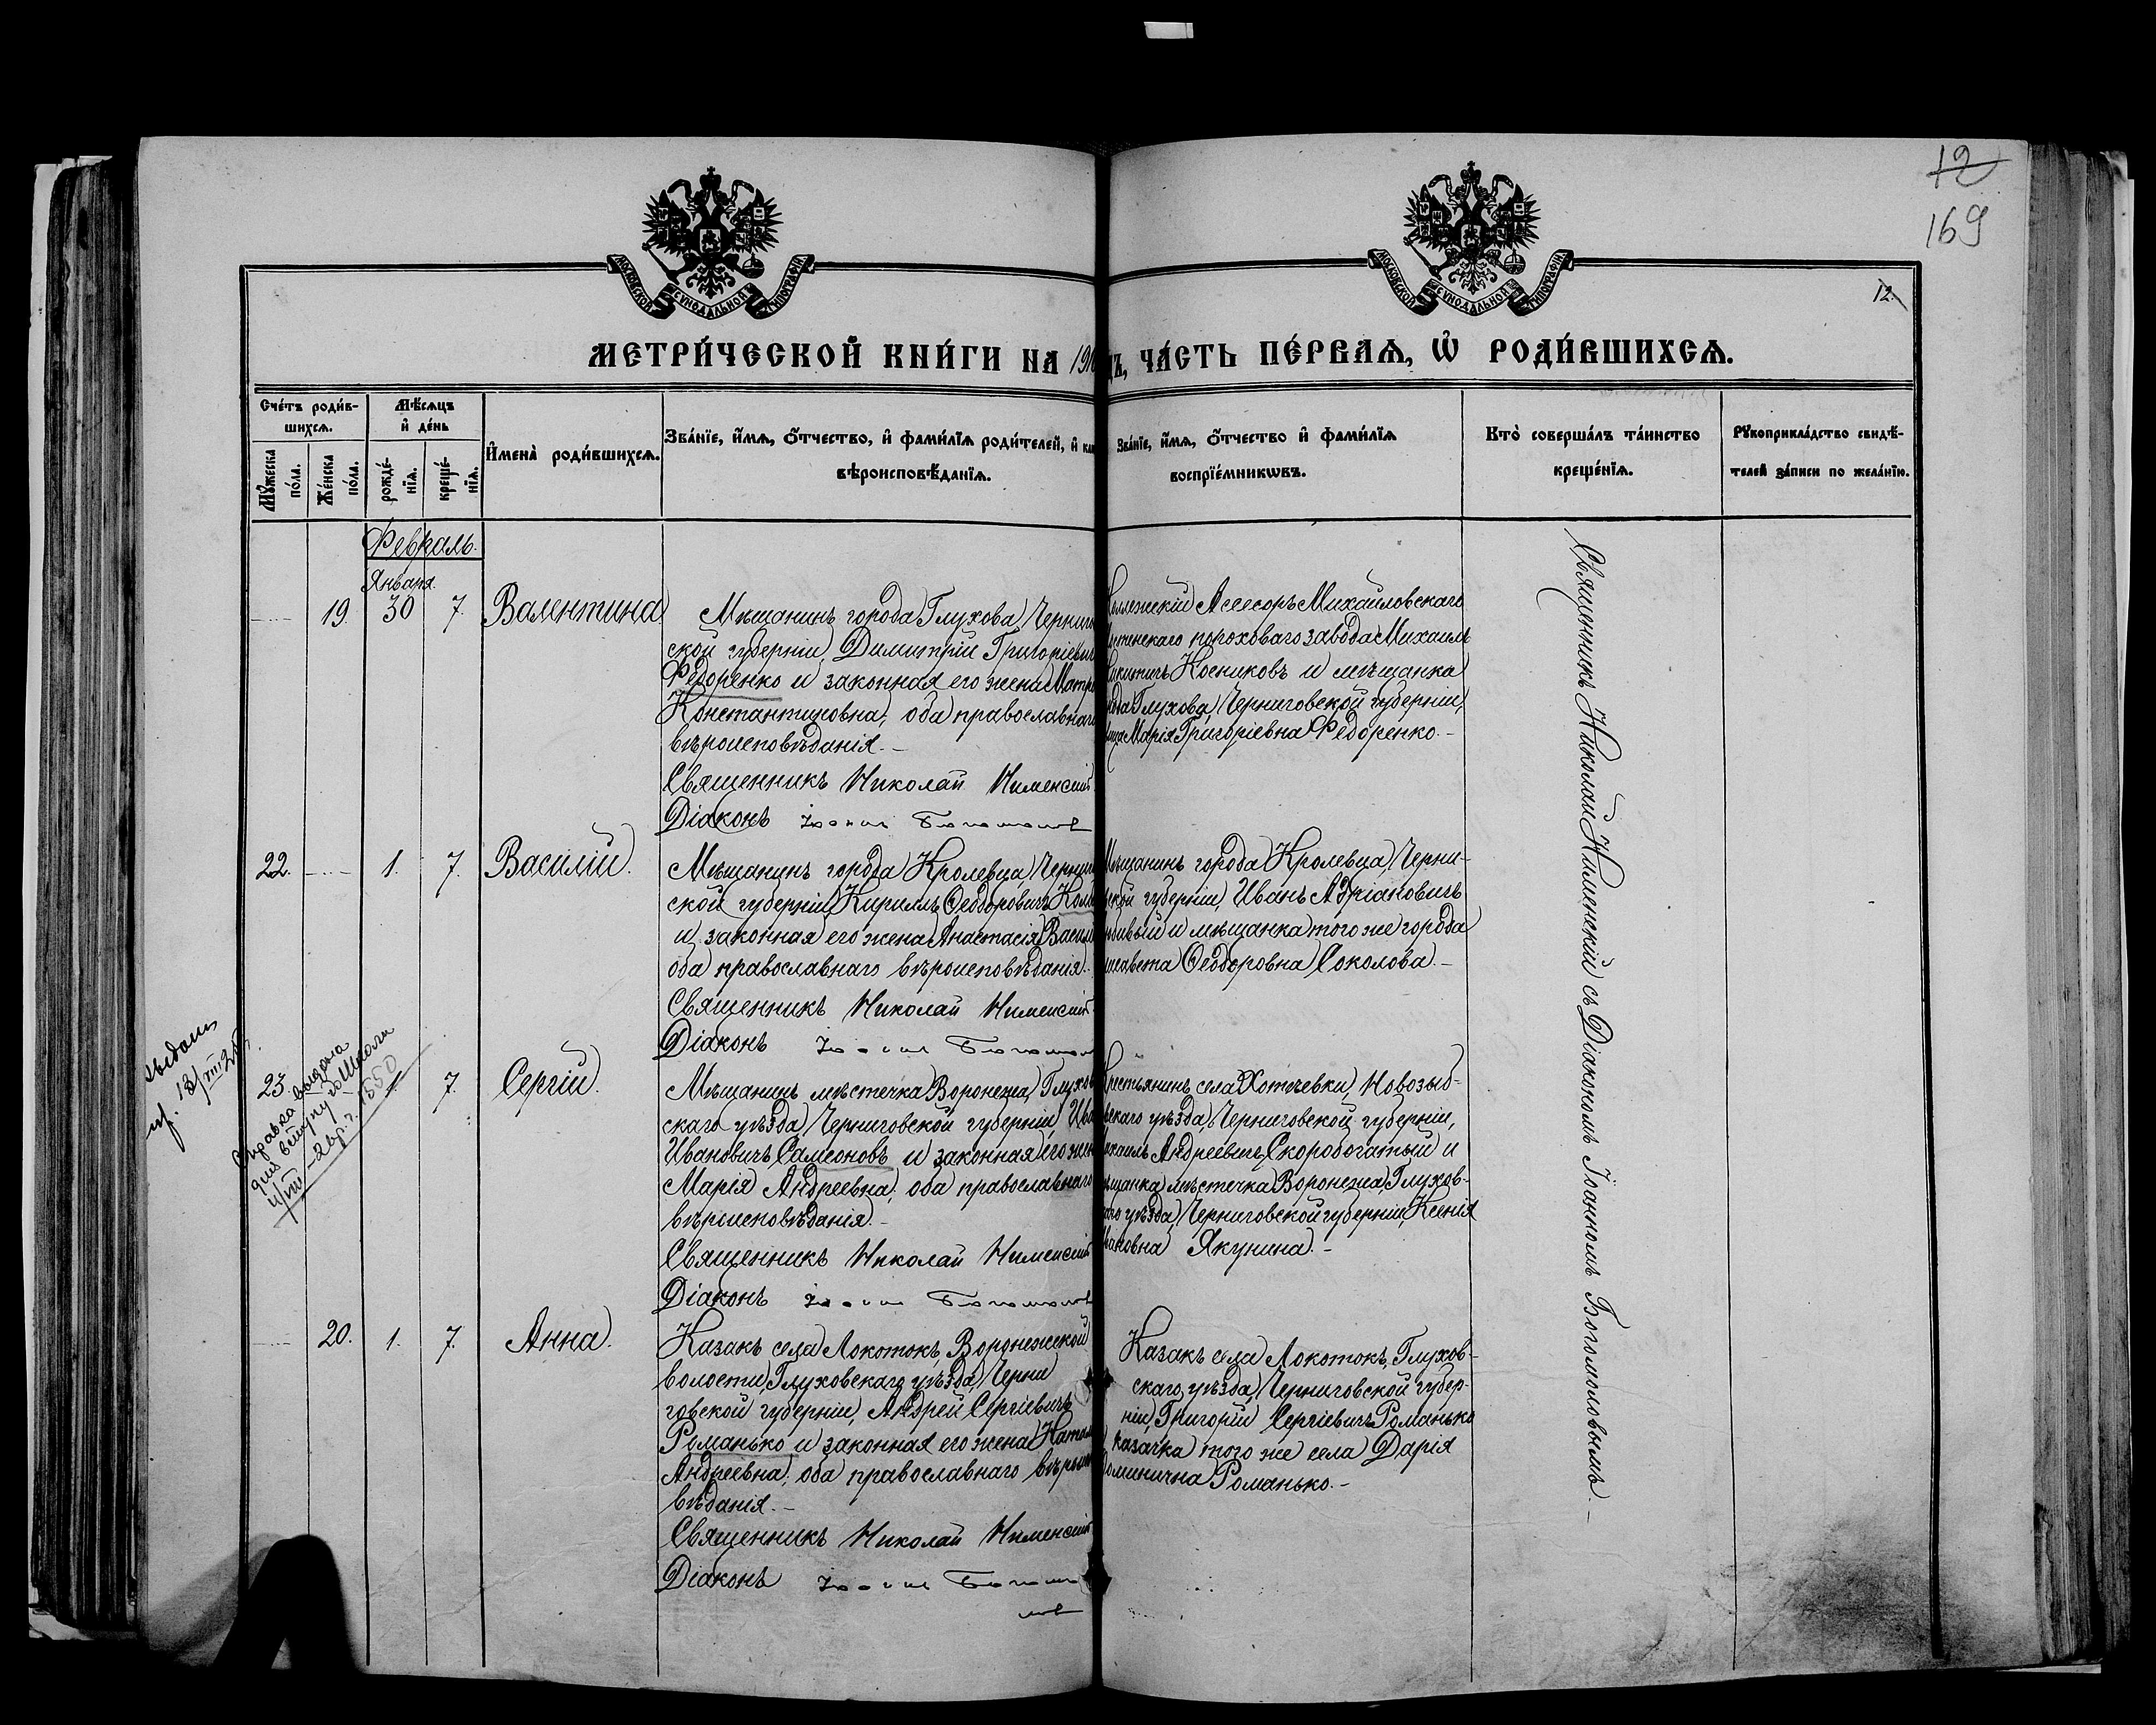 12
169
12.
МОСКОВСКОЙ СѴНОДАЛЬНОЙ ТИПОГРАФІИ
МОСКОВСКОЙ СѴНОДАЛЬНОЙ ТИПОГРАФІИ
МЕТРИ́ЧЕСКОЙ КНИ́ГИ НА 191
ЧА́СТЬ ПЕ́РВАѦ, Ѽ РОДИ́ВШИХСѦ.
Сче́тъ роди́в-
шихсѧ.
Мꙋ́жеска по́ла.
Же́нска по́ла.
Мѣ́сѧцъ
и҆ де́нь
рожде́-
нїѧ.
креще́-
нїѧ.
И҆мена̀ роди́вшихсѧ.
Зва́нїе, и҆́мѧ, ѻ҆́тчество, и҆ фами́лїѧ роди́телей, и҆
вѣроисповѣ́данїѧ.
Зва́нїе, и҆́мѧ, ѻ҆́тчество и҆ фами́лїѧ
воспрїе́мникѡвъ.
Кто̀ соверша́лъ та́инство
креще́нїѧ.
Рꙋкоприкла́дство свидѣ́-
телей за́писи по жела́нїю.
Февраль.
Января.
19. 30 7. Валентина
Мѣщанинъ города Глухова, Черниго
ской губерніи, Димитрій Григорьевич
Федоренко и законная его жена Матро
Константиновна, оба православнаго
вѣроисповѣданія.-
Священникъ Николай
Діаконъ
Ассесоръ Михайловскаго
пороховаго завода Михаилъ
Косниковъ и мѣщанка
Глухова, Черниговской губерніи,
Марія Григоріевна Федоренко.-
22. 1. 7. Василій.
Мѣщанинъ города Кролевца, Черниго
ской губерніи, Кириллъ Ѳеодоровичъ
и законная его жена Анастасія Васил
оба православнаго вѣроисповѣданія.
Священникъ Николай
Діаконъ
Мѣщанинъ города Кролевца, Черни-
ской губерніи, Иванъ Адріановичъ
и мѣщанка того же города
Ѳеодоровна Соколова.-
23. 1. 7. Сергій.
Справка выдана
для вступ. до школи
Мѣщанинъ мѣстечка Воронежа, Глухов
скаго уѣзда, Черниговской губерніи, Ива
Ивановичъ Самсоновъ и законная его жен
Марія Андреевна, оба православнаго
вѣроисповѣданія.-
Священникъ Николай
Діаконъ
Крестьянинъ села Хотѣевки, Новозыб-
скаго уѣзда, Черниговской губерніи,
Андреевичъ Скоробогатый и
мѣстечка Воронежа, Глухов-
уѣзда, Черниговской губерніи, Ксенія
Якунина.-
20. 1. 7. Анна.
Казакъ села Локотокъ, Воронежской
волости, Глуховскаго уѣзда, Черни
говской губерніи, Андрей Сергіевичъ
Романько и законная его жена Натал
Андреевна, оба православнаго вѣроис
вѣданія.-
Священникъ Николай
Діаконъ
Казакъ села Локотокъ, Глухов-
скаго уѣзда, Черниговской губер-
ніи, Григорій Сергіевичъ Романько
казачка того же села Дарія
Романько.-
Священникъ Николай съ Діакономъ Іоанномъ Богомоловымъ.-